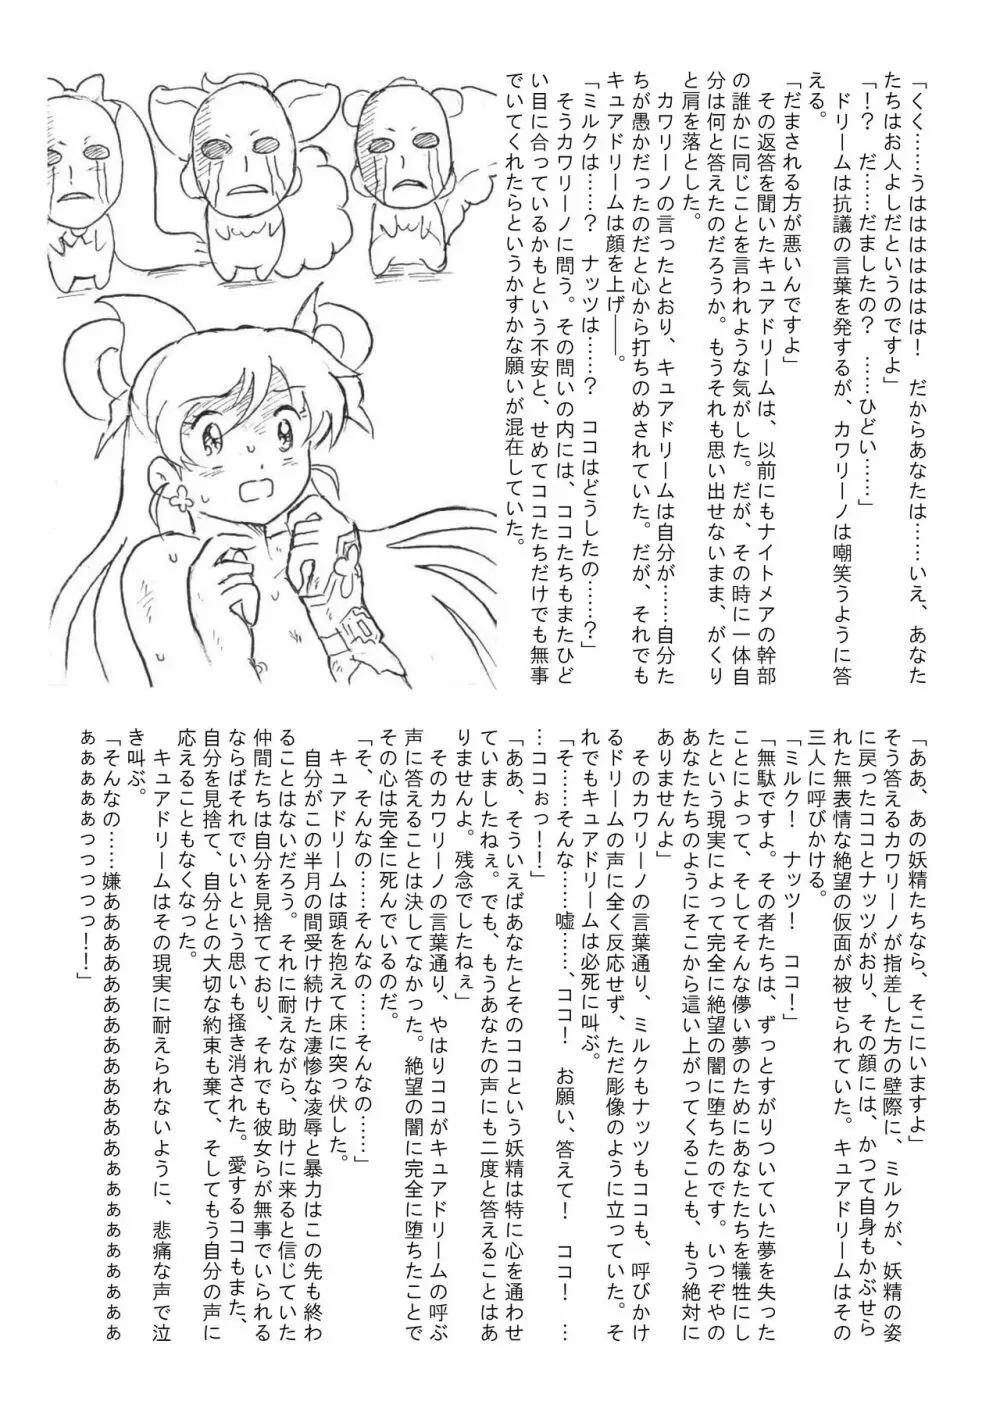 「くく……うはははははは！　だからあなたは……いえ、あなた
たちはお人よしだというのですよ」
「！？　だ……だましたの？　……ひどい……」
　ドリームは抗議の言葉を発するが、カワリーノは嘲笑うように答
える。
「だまされる方が悪いんですよ」
　その返答を聞いたキュアドリームは、以前にもナイトメアの幹部
の誰かに同じことを言われような気がした。だが、その時に一体自
分は何と答えたのだろうか。もうそれも思い出せないまま、がくり
と肩を落とした。
　カワリーノの言ったとおり、キュアドリームは自分が……自分た
ちが愚かだったのだと心から打ちのめされていた。だが、それでも
キュアドリームは顔を上げ――。
「ミルクは……？　ナッツは……？　ココはどうしたの……？」
　そうカワリーノに問う。その問いの内には、ココたちもまたひど
い目に合っているかもという不安と、せめてココたちだけでも無事
でいてくれたらというかすかな願いが混在していた。
「ああ、あの妖精たちなら、そこにいますよ」
そう答えるカワリーノが指差した方の壁際に、ミルクが、妖精の姿
に戻ったココとナッツがおり、その顔には、かつて自身もかぶせら
れた無表情な絶望の仮面が被せられていた。キュアドリームはその
三人に呼びかける。
「ミルク！　ナッツ！　ココ！」
「無駄ですよ。その者たちは、ずっとすがりついていた夢を失った
ことによって、そしてそんな儚い夢のためにあなたたちを犠牲にし
たという現実によって完全に絶望の闇に堕ちたのです。いつぞやの
あなたたちのようにそこから這い上がってくることも、もう絶対に
ありませんよ」
　そのカワリーノの言葉通り、ミルクもナッツもココも、呼びかけ
るドリームの声に全く反応せず、ただ彫像のように立っていた。そ
れでもキュアドリームは必死に叫ぶ。
「そ……そんな……嘘……、ココ！　お願い、答えて！　ココ！　…
…ココぉっ！！」
「ああ、そういえばあなたとそのココという妖精は特に心を通わせ
ていましたねぇ。でも、もうあなたの声にも二度と答えることはあ
りませんよ。残念でしたねぇ」
　そのカワリーノの言葉通り、やはりココがキュアドリームの呼ぶ
声に答えることは決してなかった。絶望の闇に完全に堕ちたことで
その心は完全に死んでいるのだ。
「そ、そんなの……そんなの……そんなの……」
　キュアドリームは頭を抱えて床に突っ伏した。
　自分がこの半月の間受け続けた凄惨な凌辱と暴力はこの先も終わ
ることはないだろう。それに耐えながら、助けに来ると信じていた
仲間たちは自分を見捨てており、それでも彼女らが無事でいられる
ならばそれでいいという思いも掻き消された。愛するココもまた、
自分を見捨て、自分との大切な約束も棄て、そしてもう自分の声に
応えることもなくなった。
　キュアドリームはその現実に耐えられないように、悲痛な声で泣
き叫ぶ。
「そんなの……嫌ああああああああああああああぁぁぁぁぁぁぁぁ
ぁぁぁぁぁっっっっっ！！」